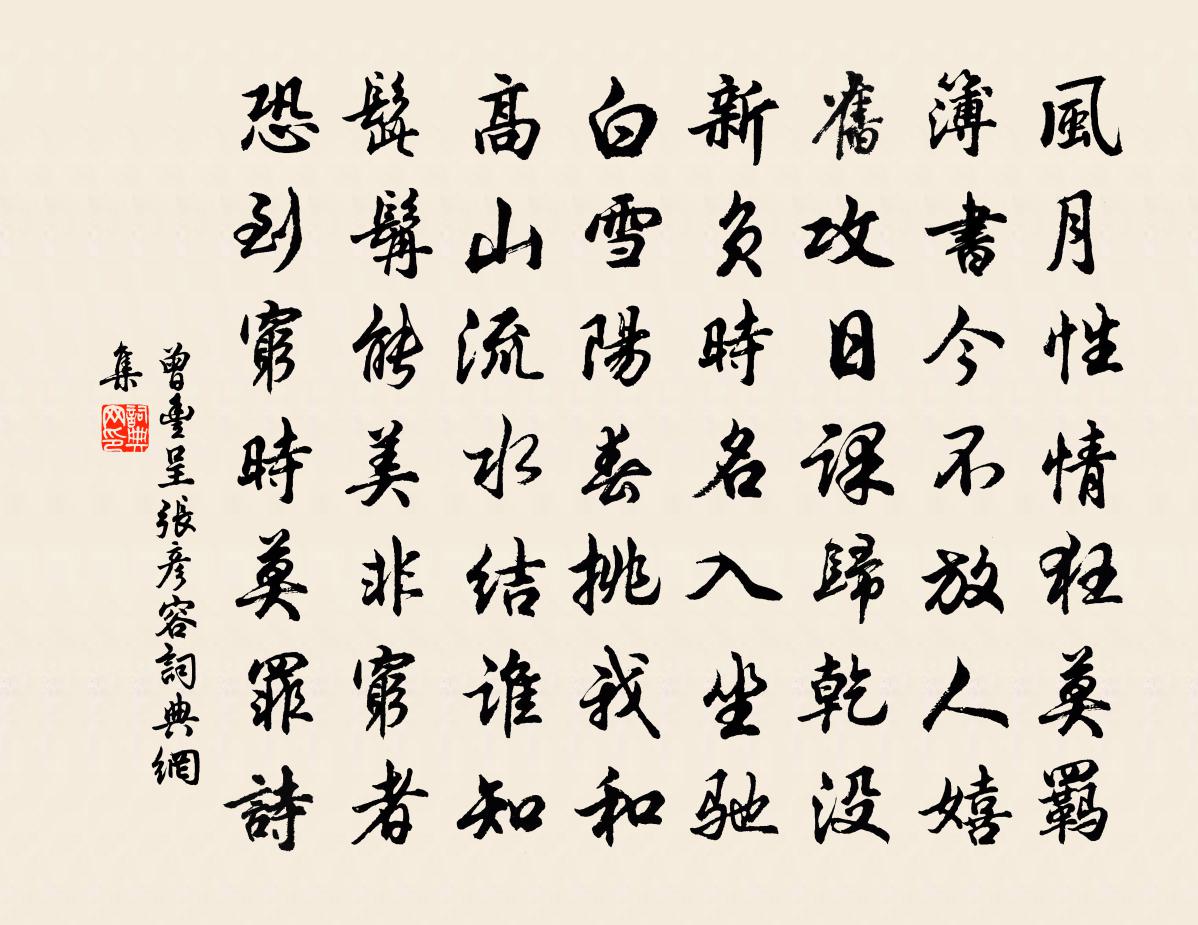 風月性情狂莫羈
簿書今不放人嬉
舊攻日課歸乾没
新負時名入坐馳
白雪陽春挑我和
高山流水結誰知
髭髯能美非窮者
恐到窮時莫罪詩
曾豊呈張彦容詞典網
集
詞典
网印